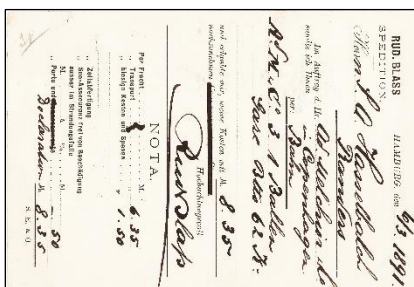 RUD. BLASS
SPEDITION.
HAMBURG, den 6/3 1891.
Herrn S. C. Hasselbalch
Randers
Im Auftrag d. Hr. Ad. Melchior
in Copenhagen
sandte ich Ihnen
per: Bahn
3 1 Ballen
und erlaubte mir, meine Kosten mit M. 8.35
nachzunehmen
Hochachtungsvoll
Rud Blass
NOTA.
Per Fracht M.
" Transport 6.35
" hiesige Kosten und Spesen " 1.50
" Zollabfertigung
" See-Assecuranz frei von Beschädigung
ausser im Strandungsfalle
M. à % M.
" Porto und
Declaration " 50
M. 8.35
S. E. & O.